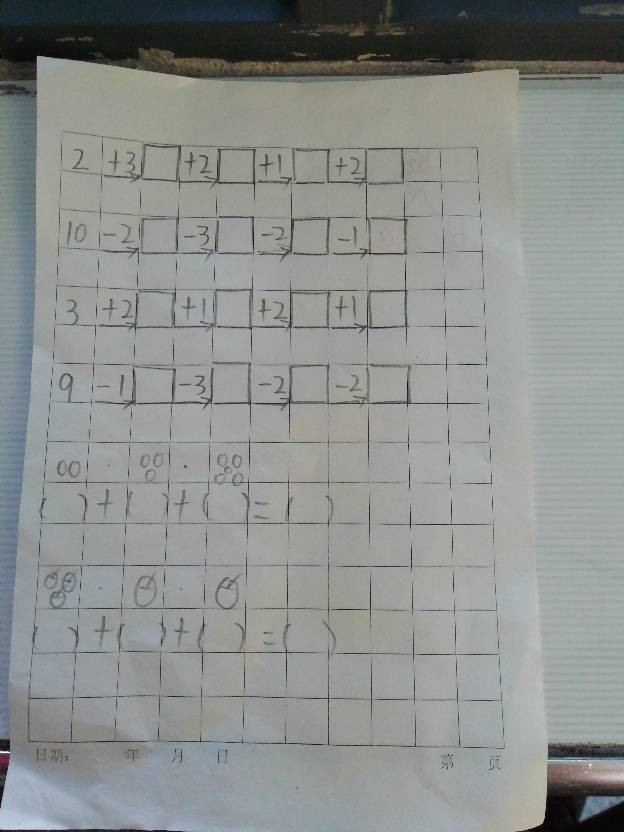 2 +3 □ +2 □ +1 □ +2 □
10 -2 □ -3 □ -2 □ -1 □
3 +2 □ +1 □ +2 □ +1 □
9 -1 □ -3 □ -2 □ -2 □
( ) + ( ) + ( ) = ( )
( ) + ( ) + ( ) = ( )
日期: 年 月 日 第 页